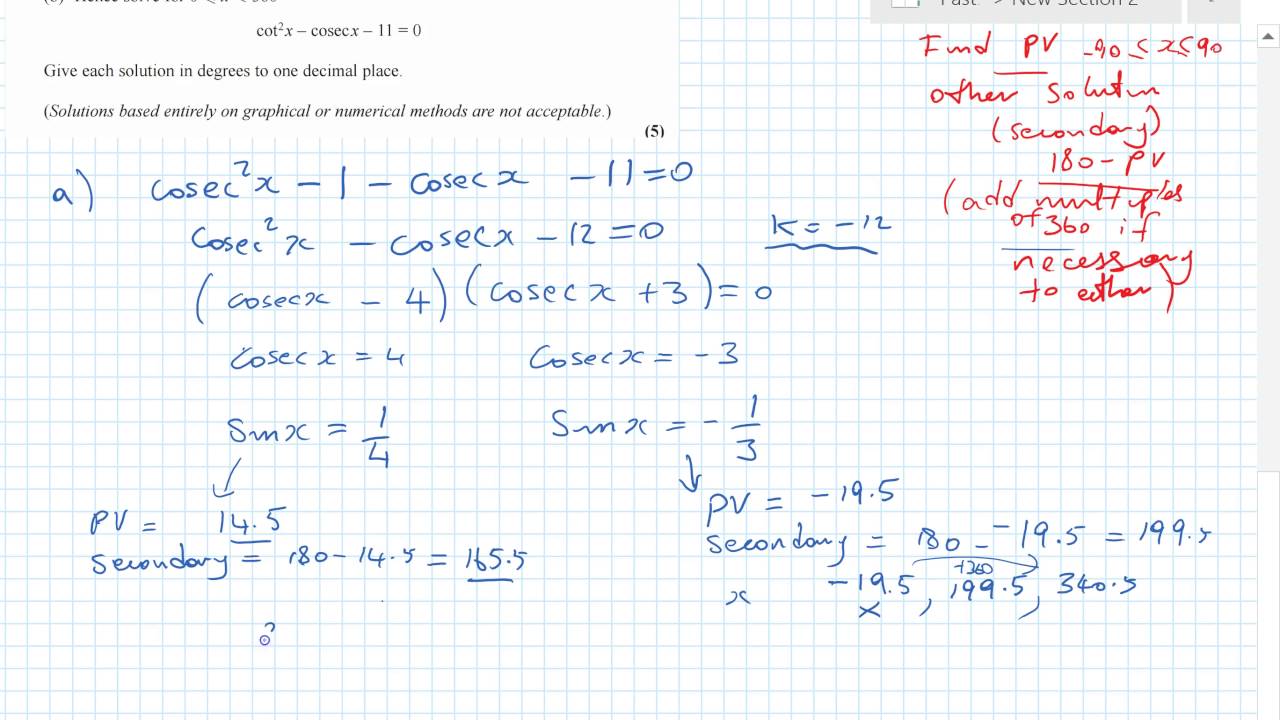 (b) Hence solve for 0 < x < 360
cot²x – cosecx – 11 = 0
Give each solution in degrees to one decimal place.
(Solutions based entirely on graphical or numerical methods are not acceptable.)
(5)
Past --> New Section 2
Find PV -90 ≤ x ≤ 90
other solution
(secondary)
180 - PV
(add multiples
of 360 if
necessary
to either)
a) cosec²x - 1 - cosecx - 11 = 0
cosec²x - cosecx - 12 = 0 K = -12
(cosecx - 4)(cosecx + 3) = 0
cosecx = 4 cosecx = -3
sinx = 1/4 sinx = -1/3
PV = 14.5
secondary = 180 - 14.5 = 165.5
PV = -19.5
secondary = 180 - -19.5 = 199.5
+360
x -19.5, 199.5, 340.5
x